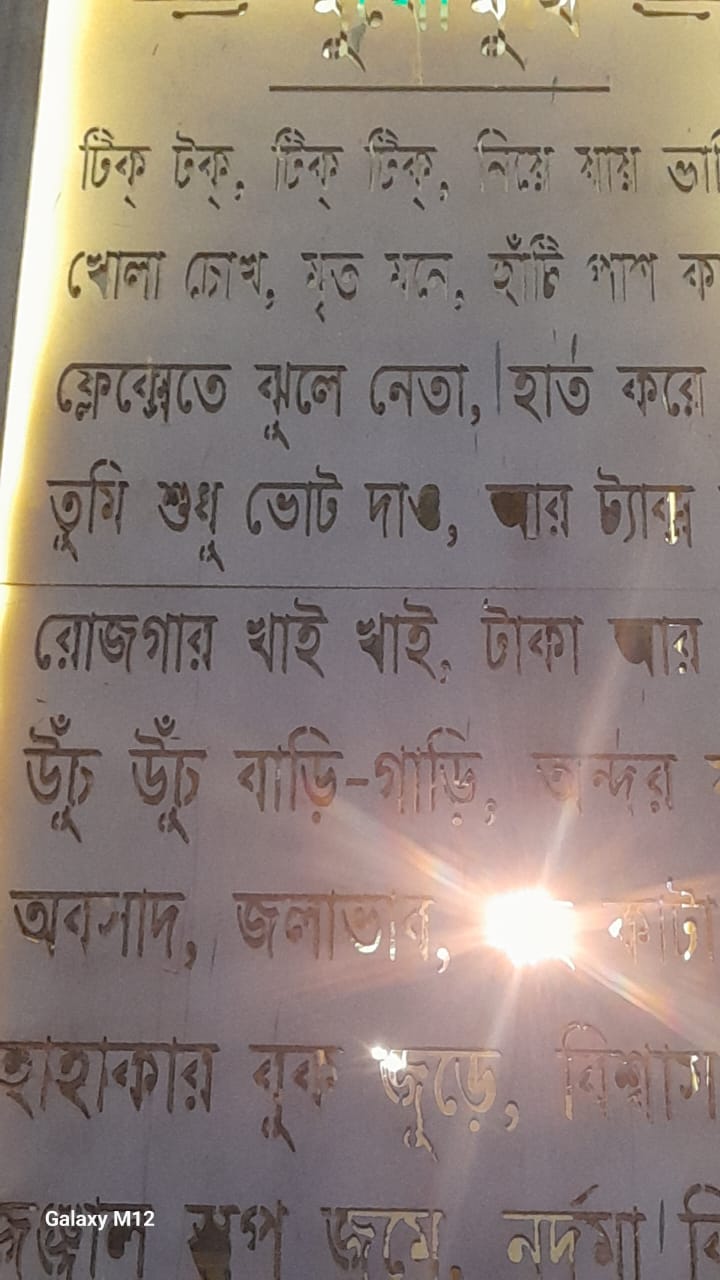 টিক্ টক্, টিক্ টিক্, নিয়ে যায়
খোলা চোখ, মৃত মনে, হাঁটি পাশ
ফ্লেক্সেতে ঝুলে নেতা, হাত করে
তুমি শুধু ভোট দাও, আর ট্যাক্স
রোজগার খাই খাই, টাকা আর
উঁচু উঁচু বাড়ি-গাড়ি, অন্দর
অবসাদ, জলাভাব, কাটা
হাহাকার বুক জুড়ে, বিশ্বাস
জঞ্জাল স্তূপ জমে, নর্দমা
Galaxy M12